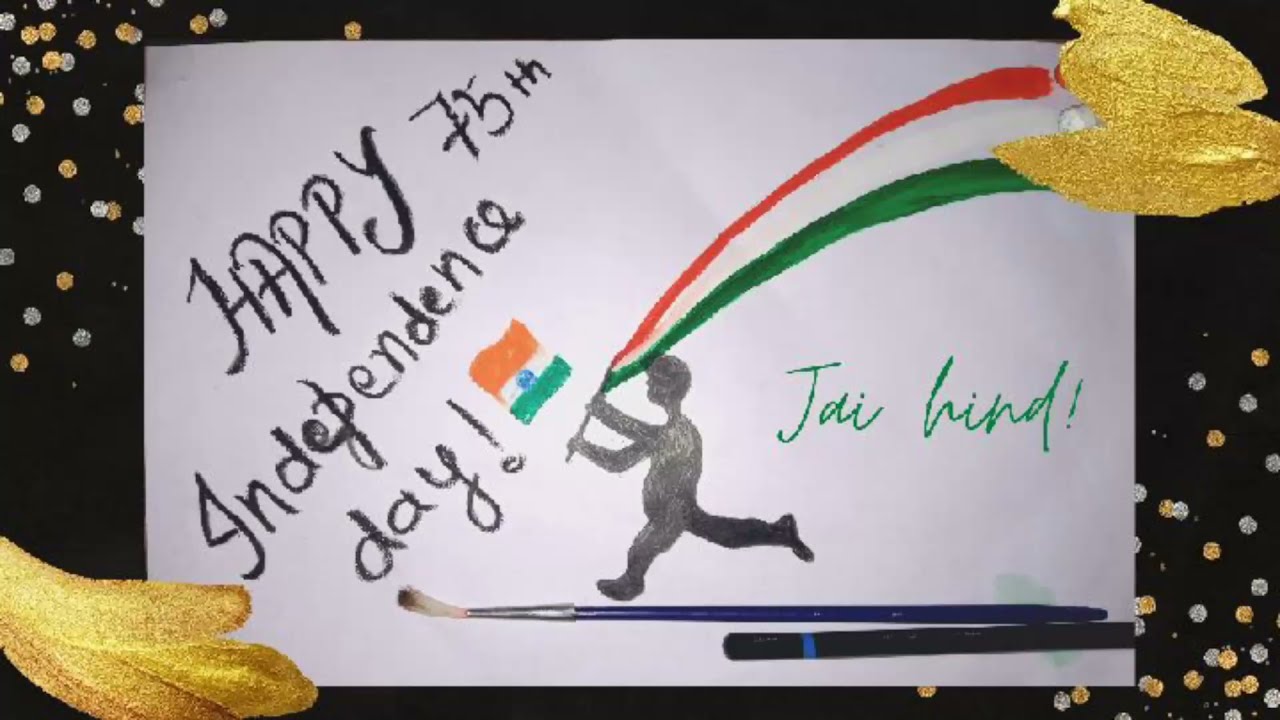 HAPPY 75th
Independence
day!
Jai hind!